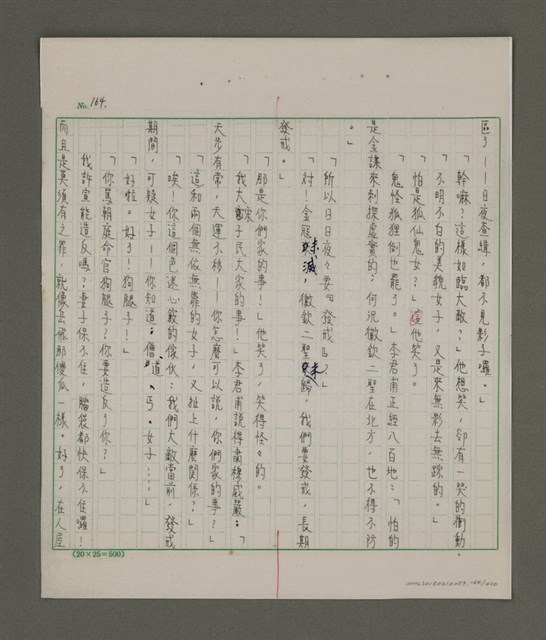 No. 164.
區了——日夜查緝，都不見影子囉。」
「幹嘛？這樣如臨大敵？」他想笑，卻有一笑的衝動。
「不明不白的美貌女子，又是來無影去無踪的。」
「怕是狐仙鬼女？」他笑了。
「鬼怪狐狸倒也罷了。」李君甫正經八百地：「怕的
是金諜來刺探虛實的，何況徽欽二聖在北方，也不得不防
。」
「所以日日夜夜要『發戒』？」
「对！金寇未滅，徽欽二聖未歸，我們要發戒，長期
發戒。」
「那是你們家的事！」他笑了，笑得怪怪的。
「我大宋子民大家的事！」李君甫說得肅穆威嚴：「
天步有常，天運不移——你怎麼可以說，你們家的事？」
「這和兩個無依無靠的女子，又扯上什麼關係？」
「唉！你這個色迷心竅的傢伙：我們大敵當前，發戒
期間，可疑女子——你知道：僧、道、丐、女子……」
「好啦。好了！狗腿子！」
「你罵朝庭命官狗腿子？你要造反了你？」
我許宣能造反嗎？妻子保不住，腦袋都快保不住囉！
而且是莫須有之罪，就像岳飛那傻瓜一樣。好了，在人屋
(20×25=500)